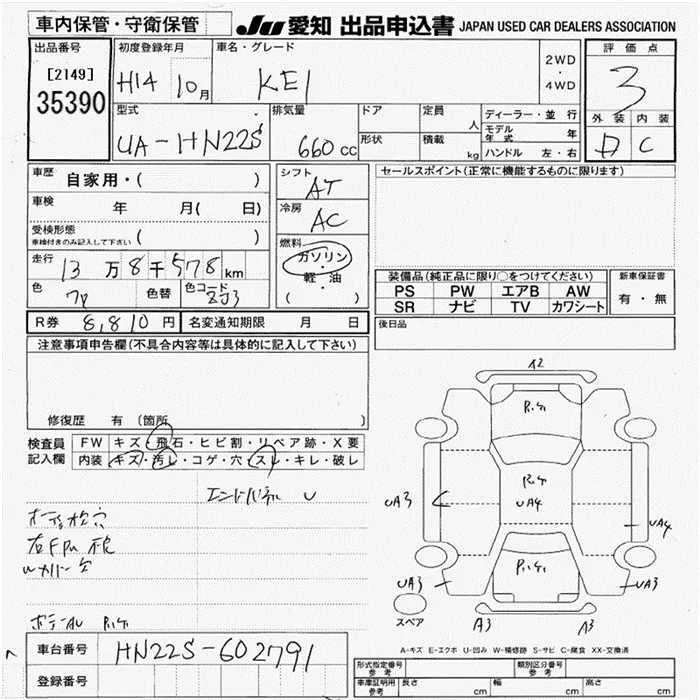 車内保管・守衛保管
JU 愛知 出品申込書 JAPAN USED CAR DEALERS ASSOCIATION
出品番号
[2149]
35390
初度登録年月
H14 10月
車名・グレード
KEI
2WD
・
4WD
評価点
3
外装 内装
D C
型式
UA-HN22S
排気量
660 cc
ドア
形状
定員
人
積載
kg
ディーラー・並行
モデル年式 年
ハンドル 左・右
車歴 自家用・( )
車検 年 月( 日)
受検形態
車検付きのみ記入して下さい ( )
走行 13万8千578km
色 色替 色コード ZJ3
シフト
AT
冷房
AC
燃料
ガソリン
・
軽・油
・
( )
セールスポイント(正常に機能するものに限ります)
装備品(純正品に限り○をつけてください)
PS PW エアB AW
SR ナビ TV カワシート
新車保証書
有・無
R券 8,810円 名変通知期限 月 日
後日品
注意事項申告欄(不具合内容等は具体的に記入して下さい)
修復歴 有 (箇所 )
検査員記入欄
FW キズ・飛石・ヒビ割・リペア跡・X要
内装 キズ・汚レ・コゲ・穴・スレ・キレ・破レ
エンドパネル U
A2
UA3
UA4
UA4
UA3
UA3
スペア
A3
A3
A-キズ E-エクボ U-凹み W-補修跡 S-サビ C-腐食 XX-交換済
車台番号 HN22S-602791
登録番号
形式指定番号
参考
類別区分番号
参考
車庫証明用
参考
長さ cm 幅 cm 高さ cm